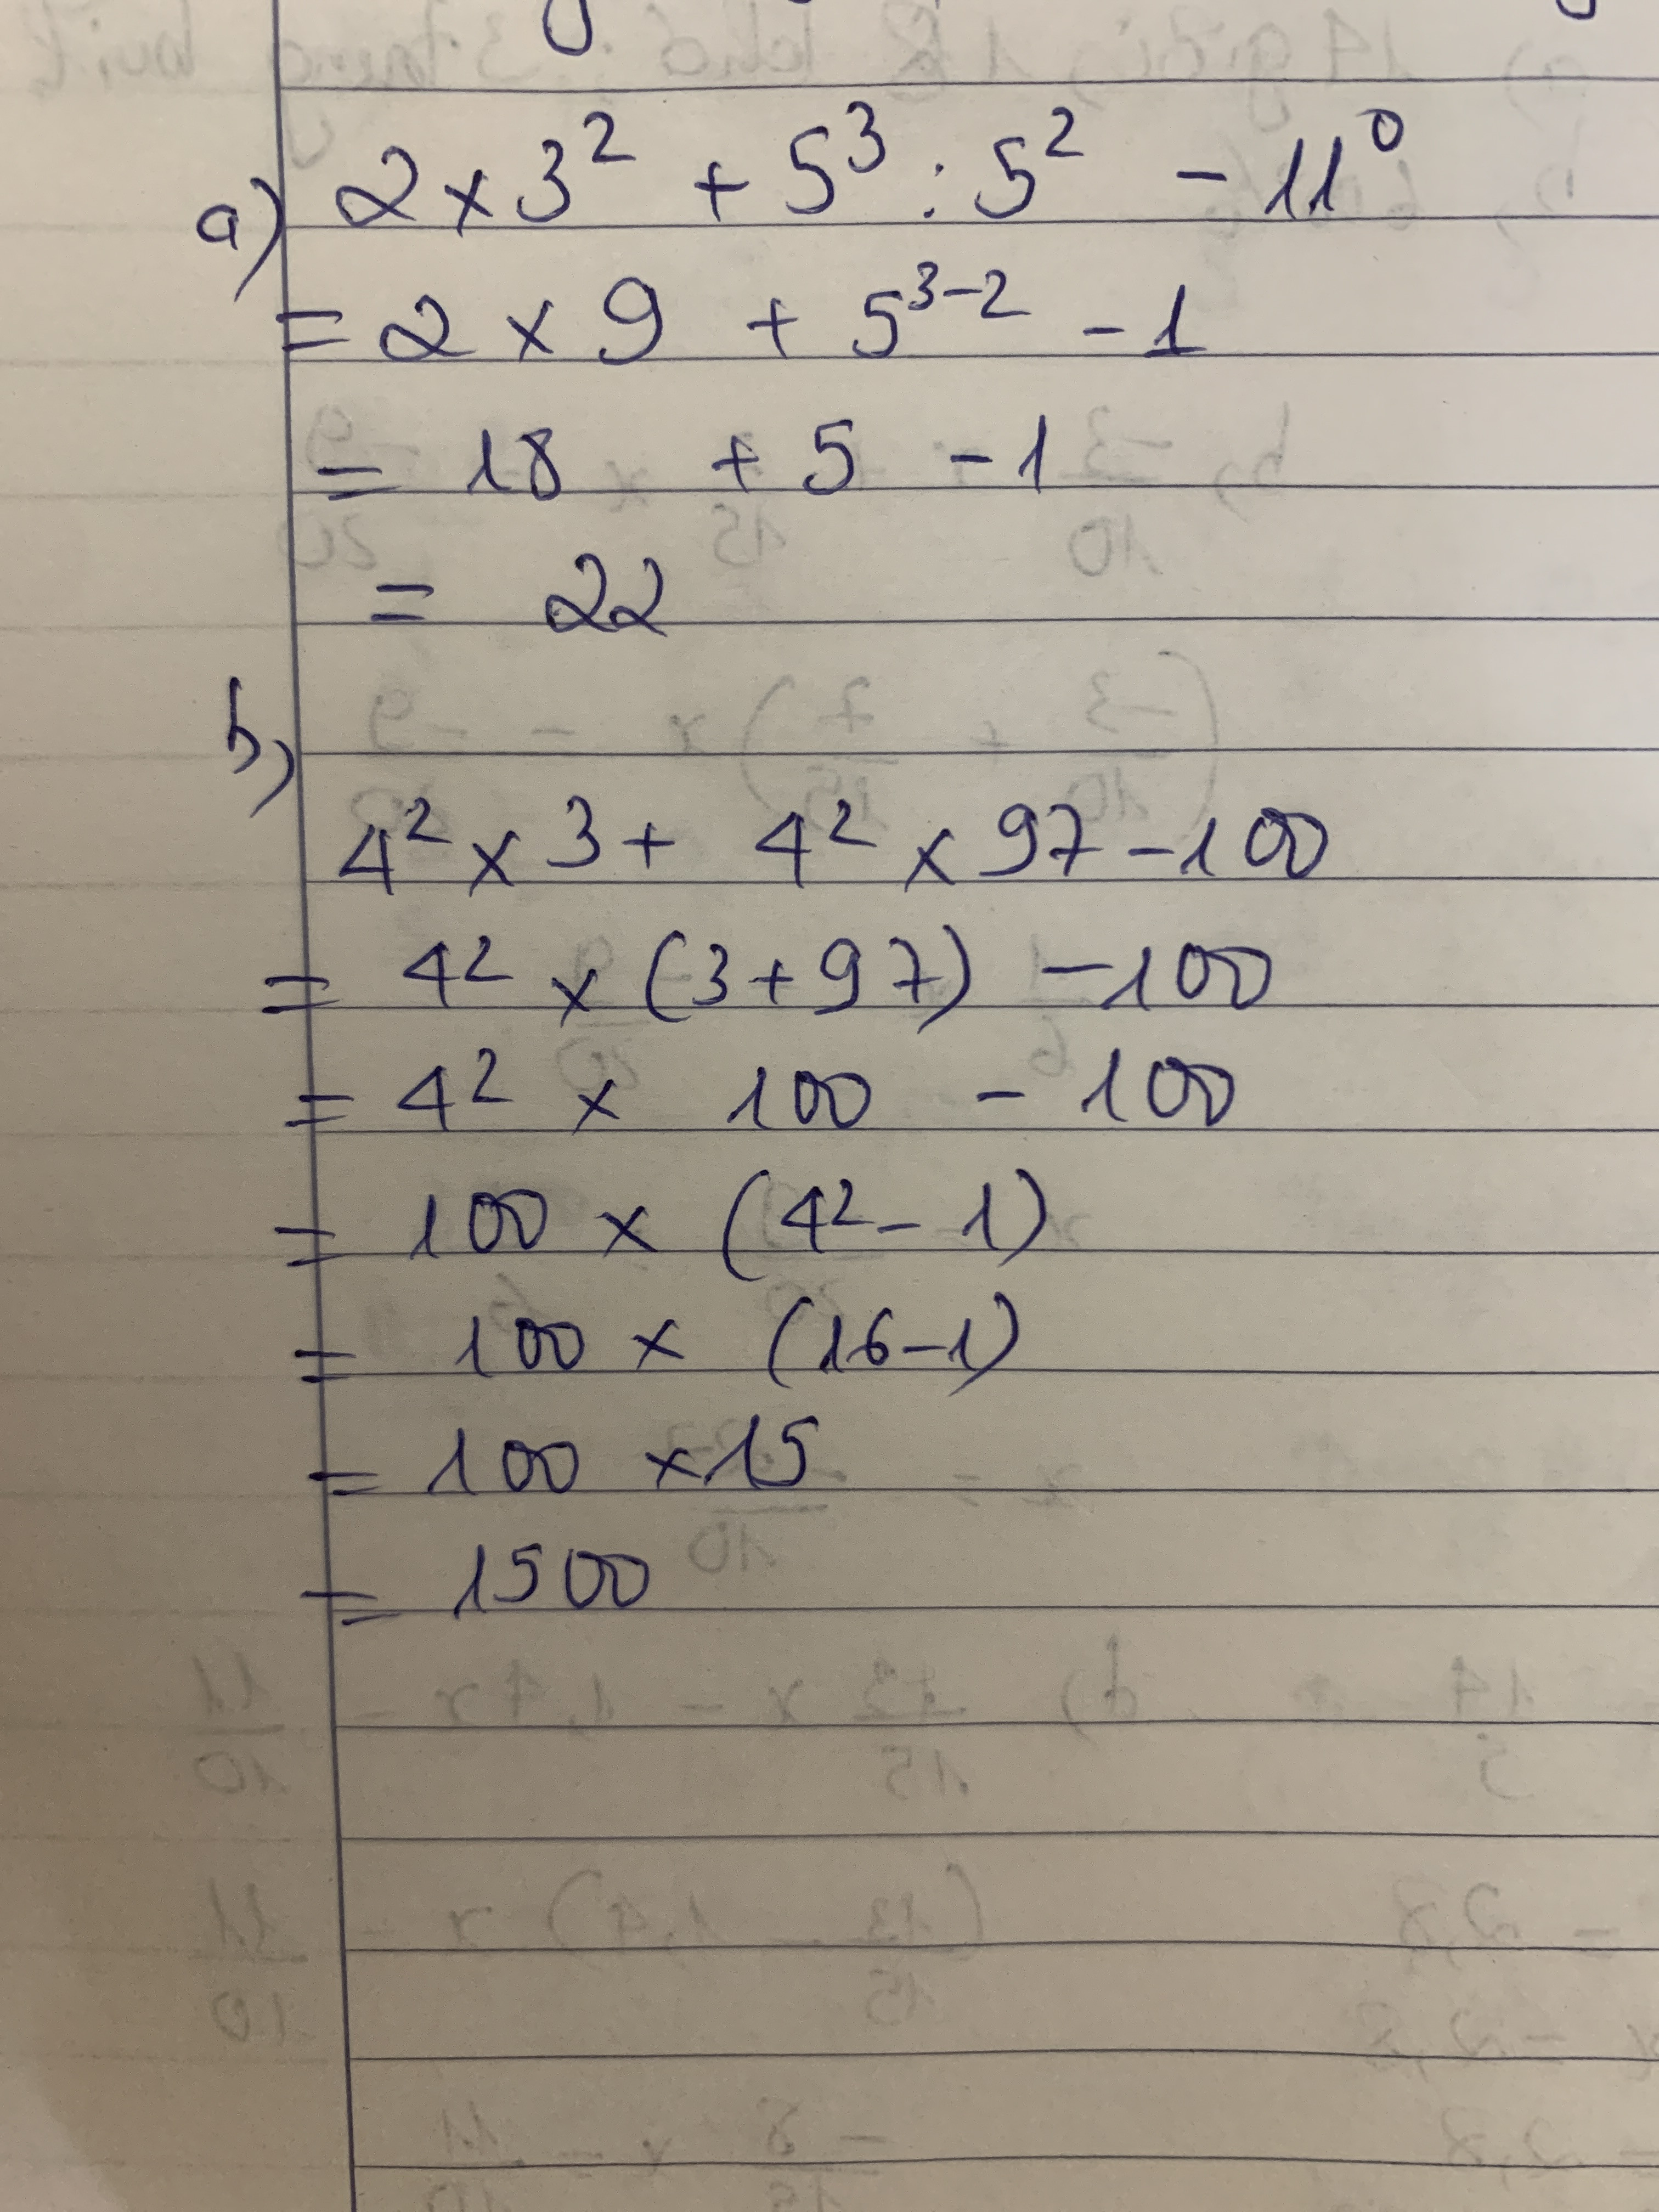 a) 2 x 3² + 5³ : 5² - 11⁰
= 2 x 9 + 5³⁻² - 1
= 18 + 5 - 1
= 22
b,
4² x 3 + 4² x 97 - 100
= 4² x (3 + 97) - 100
= 4² x 100 - 100
= 100 x (4² - 1)
= 100 x (16 - 1)
= 100 x 15
= 1500